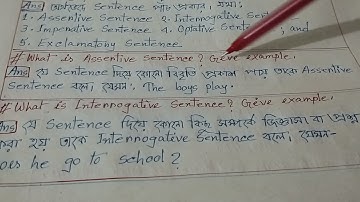 Ans অর্থভেদে Sentence পাঁচ প্রকার, যথা:
1. Assertive Sentence 2. Interrogative Sent
3. Imperative Sentence 4. Optative Sent and
5. Exclamatory Sentence.
# What is Assertive Sentence? Give example.
Ans যে Sentence দিয়ে কোনো বিবৃতি প্রকাশ পায় তাকে Assertive
Sentence বলে। যেমন: The boys play.
# What is Interrogative Sentence? Give example.
Ans যে Sentence দিয়ে কোনো কিছু সম্পর্কে জিজ্ঞাসা বা প্রশ্ন
করা হয় তাকে Interrogative Sentence বলে। যেমন-
oes he go to school?